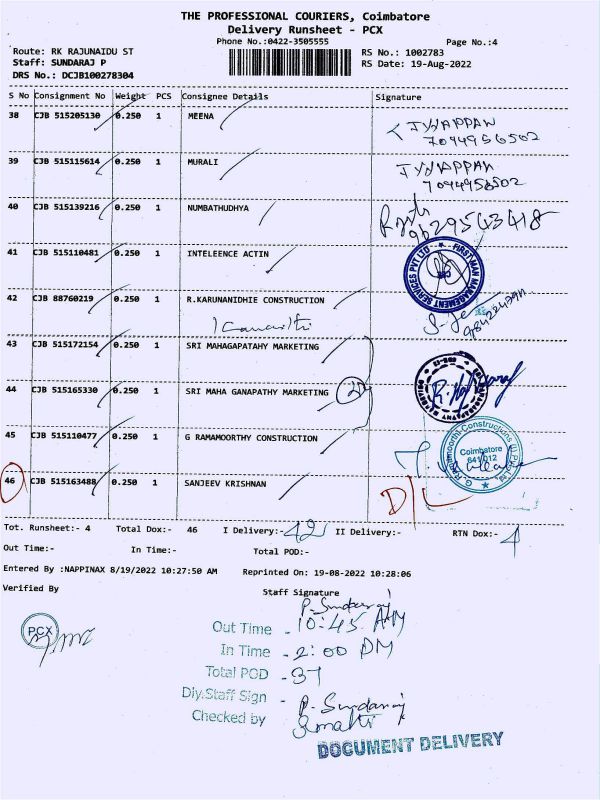 THE PROFESSIONAL COURIERS, Coimbatore
Delivery Runsheet - PCX
Phone No.:0422-3505555
Page No.:4
Route: RK RAJUNAIDU ST
RS No.: 1002783
Staff: SUNDARAJ P
RS Date: 19-Aug-2022
DRS No.: DCJB100278304
S No Consignment No Weight PCS Consignee Details Signature
38 CJB 515205130 0.250 1 MEENA
7094956502
39 CJB 515115614 0.250 1 MURALI
7094956502
40 CJB 515139216 0.250 1 NUMBATHUDHYA
9629543418
41 CJB 515110481 0.250 1 INTELEENCE ACTIN
FIRSTMAN MANAGEMENT SERVICES PVT LTD
42 CJB 88760219 0.250 1 R.KARUNANIDHIE CONSTRUCTION
43 CJB 515172154 0.250 1 SRI MAHAGAPATAHY MARKETING
44 CJB 515165330 0.250 1 SRI MAHA GANAPATHY MARKETING 2
45 CJB 515110477 0.250 1 G RAMAMOORTHY CONSTRUCTION
Coimbatore
641 012
46 CJB 515163488 0.250 1 SANJEEV KRISHNAN
D/L
Tot. Runsheet:- 4 Total Dox:- 46 I Delivery:- 42 II Delivery:- RTN Dox:- 4
Out Time:- In Time:- Total POD:-
Entered By :NAPPINAX 8/19/2022 10:27:50 AM Reprinted On: 19-08-2022 10:28:06
Verified By Staff Signature
P. Sundaraj
PCX
Out Time - 10:45 AM
In Time - 2:00 PM
Total POD - 37
Dly.Staff Sign - P. Sundaraj
Checked by
DOCUMENT DELIVERY